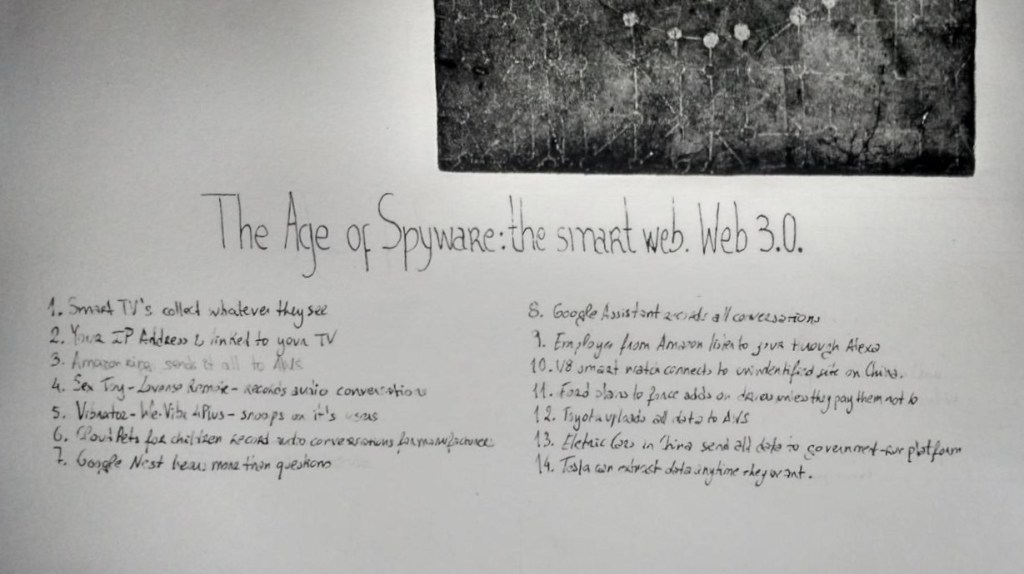 The Age of Spyware: the smart web. Web 3.0.
1. Smart TV's collect whatever they see
2. Your IP Address is linked to your TV
3. Amazon ring sends it all to AWS
4. Sex Toy - Lovense Remote - records audio conversations
5. Vibrator - We-Vibe 4 Plus - snoops on it's users
6. Cloud Pets for children record audio conversations for manufacturer
7. Google Nest hears more than questions
8. Google Assistant records all conversations
9. Employes from Amazon listen to you through Alexa
10. V8 smart watch connects to unidentified site on China.
11. Ford plans to force adds on drivers unless they pay them not to
12. Toyota uploads all data to AWS
13. Eletric Cars in China send all data to government-run platform
14. Tesla can extract data anytime they want.